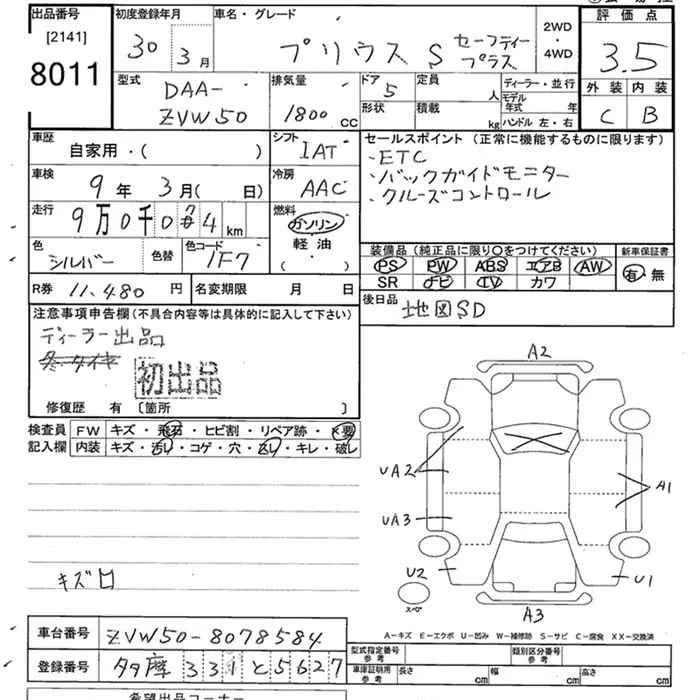 出品番号
[2141]
8011
初度登録年月
30年 3月
車名・グレード
プリウス S セーフティー
プラス
2WD
・
4WD
評価点
3.5
外装 内装
C B
型式
DAA-
ZVW50
排気量
1800 CC
ドア
5
形状
定員
人
積載
kg
ディーラー・並行
モデル
年式 年
ハンドル 左・右
車歴
自家用・( )
シフト
IAT
セールスポイント (正常に機能するものに限ります)
・ETC
・バックガイドモニター
・クルーズコントロール
車検
9年 3月( 日)
冷房
AAC
走行
9万0千0 4 km
燃料
ガソリン
軽油
( ・ )
色
シルバー
色替
色コード
1F7
装備品 (純正品に限り○をつけてください)
PS PW ABS エアB AW
SR ナビ TV カワ
新車保証書
有・無
R券 11,480 円
名変期限 月 日
後日品
地図SD
注意事項申告欄 (不具合内容等は具体的に記入して下さい)
ディーラー出品
初出品
修復歴 有 〔箇所 〕
検査員
記入欄
FW キズ・飛石・ヒビ割・リペア跡・×要
内装 キズ・汚れ・コゲ・穴・スレ・キレ・破レ
キズロ
A2
UA2
UA3
A1
U2
U1
スペ
A3
A-キズ E-エクボ U-凹み W-補修跡 S-サビ C-腐食 XX-交換済
車台番号 ZVW50-8078584
登録番号 多摩 331 と 5627
型式指定番号
参考
類別区分番号
参考
車庫証明用
参考
長さ cm
幅 cm
高さ cm
希望出品コーナー